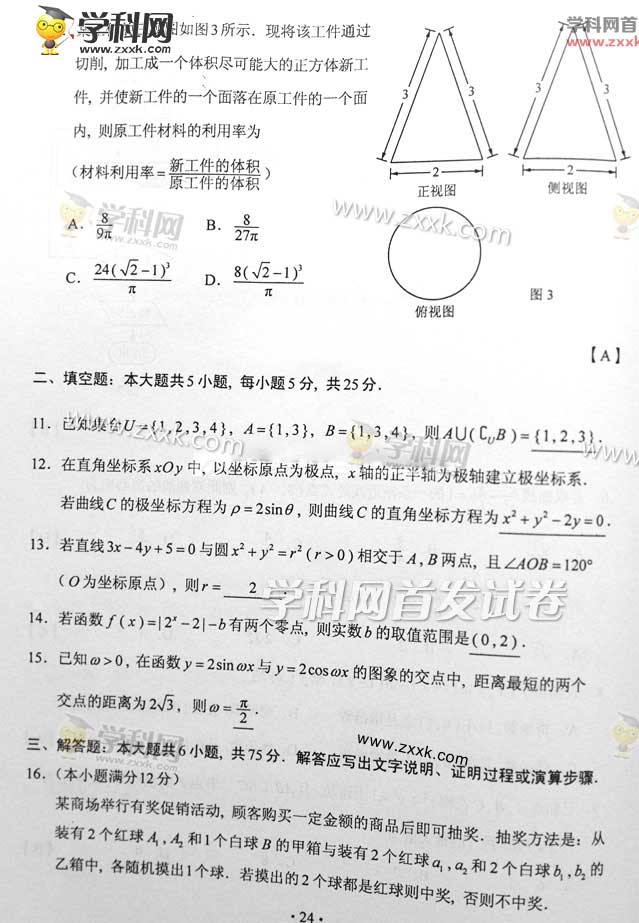 学科网首
www.zxxk.
学科网
www.zxxk.com
图如图3所示．现将该工件通过
切削, 加工成一个体积尽可能大的正方体新工
件, 并使新工件的一个面落在原工件的一个面
内, 则原工件材料的利用率为
(材料利用率=新工件的体积/原工件的体积)
A. 8/9π B. 8/27π
C. 24(√2-1)³/π D. 8(√2-1)³/π
3 3 2
正视图
3 3 2
侧视图
俯视图
图3
学科网
www.zxxk.com
www.zxxk.com
【A】
二、填空题：本大题共5小题, 每小题5分, 共25分．
11. 已知集合U={1,2,3,4}, A={1,3}, B={1,3,4}, 则A∪(∁UB)={1,2,3}．
www.zxxk.com
12. 在直角坐标系xOy中, 以坐标原点为极点, x轴的正半轴为极轴建立极坐标系．
若曲线C的极坐标方程为ρ=2sinθ, 则曲线C的直角坐标方程为x²+y²-2y=0．
13. 若直线3x-4y+5=0与圆x²+y²=r²(r>0)相交于A,B两点, 且∠AOB=120°
(O为坐标原点), 则r= 2 ．
学科网首发试卷
14. 若函数f(x)=|2ˣ-2|-b有两个零点, 则实数b的取值范围是(0,2)．
15. 已知ω>0, 在函数y=2sinωx与y=2cosωx的图象的交点中, 距离最短的两个
交点的距离为2√3, 则ω=π/2．
学科网
www.zxxk.com
www.zxxk.com
三、解答题：本大题共6小题, 共75分．解答应写出文字说明、证明过程或演算步骤．
16. (本小题满分12分)
某商场举行有奖促销活动, 顾客购买一定金额的商品后即可抽奖．抽奖方法是：从
装有2个红球A₁,A₂和1个白球B的甲箱与装有2个红球a₁,a₂和2个白球b₁,b₂的
乙箱中, 各随机摸出1个球．若摸出的2个球都是红球则中奖, 否则不中奖．
· 24 ·